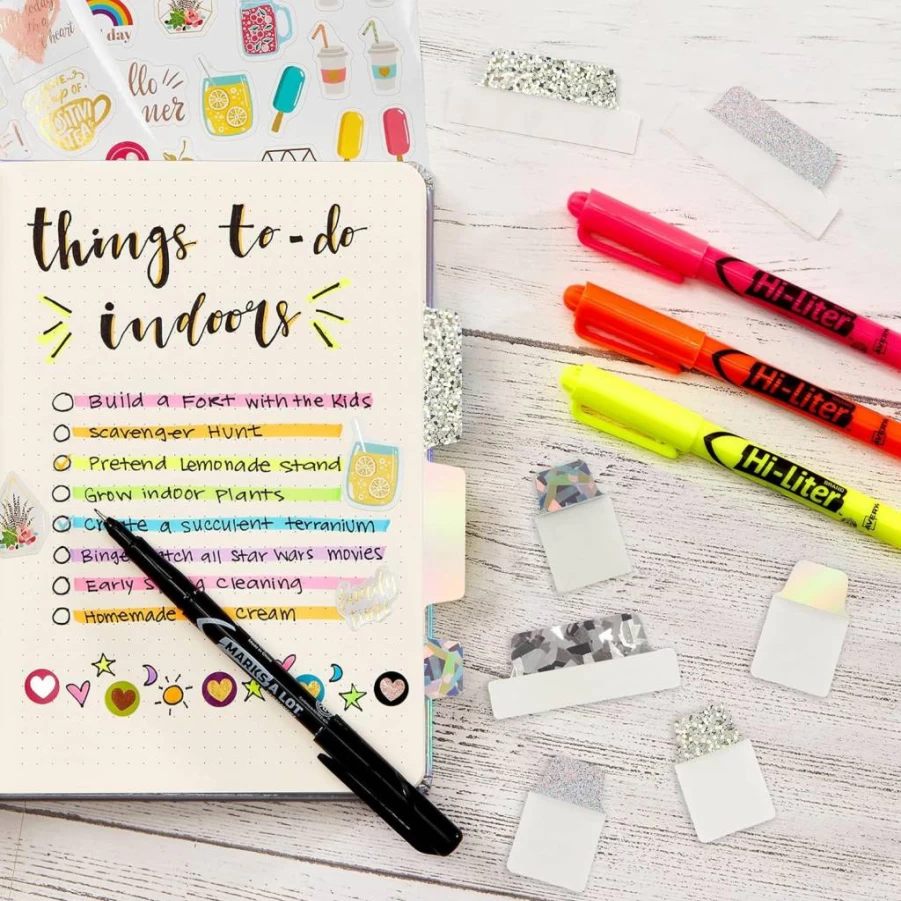 day
llo
ner
things to-do
indoors
Build a FORT with the Kids
Scavenger Hunt
Pretend Lemonade Stand
Grow indoor Plants
a succulent terranium
Binge all Star Wars movies
Early Cleaning
Homemade Cream
MARKS A LOT
Hi-Liter
AVERY
Hi-Liter
AVERY
Hi-Liter
BRAND
AVERY